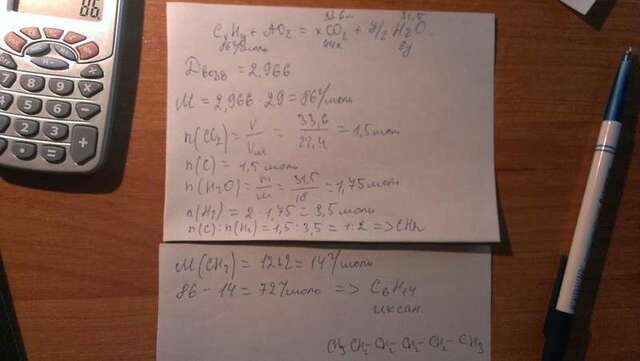 86
33,6л 31,5
CxHy + AO2 = xCO2 + y/2 H2O
86г/моль 44x 9y
Dвозд = 2,966
M = 2,966 · 29 = 86г/моль
n(CO2) = V/Vм = 33,6/22,4 = 1,5моль
n(C) = 1,5 моль
n(H2O) = m/м = 31,5/18 = 1,75моль
n(H2) = 2 · 1,75 = 3,5моль
n(C) : n(H2) = 1,5 : 3,5 = 1:2 => CH2
M(CH2) = 12+2 = 14г/моль
86 - 14 = 72г/моль => C6H14
гиксан
CH3 CH2- CH2- CH2- CH2- CH3
7 8 9
4 5 6
1 2 3
0